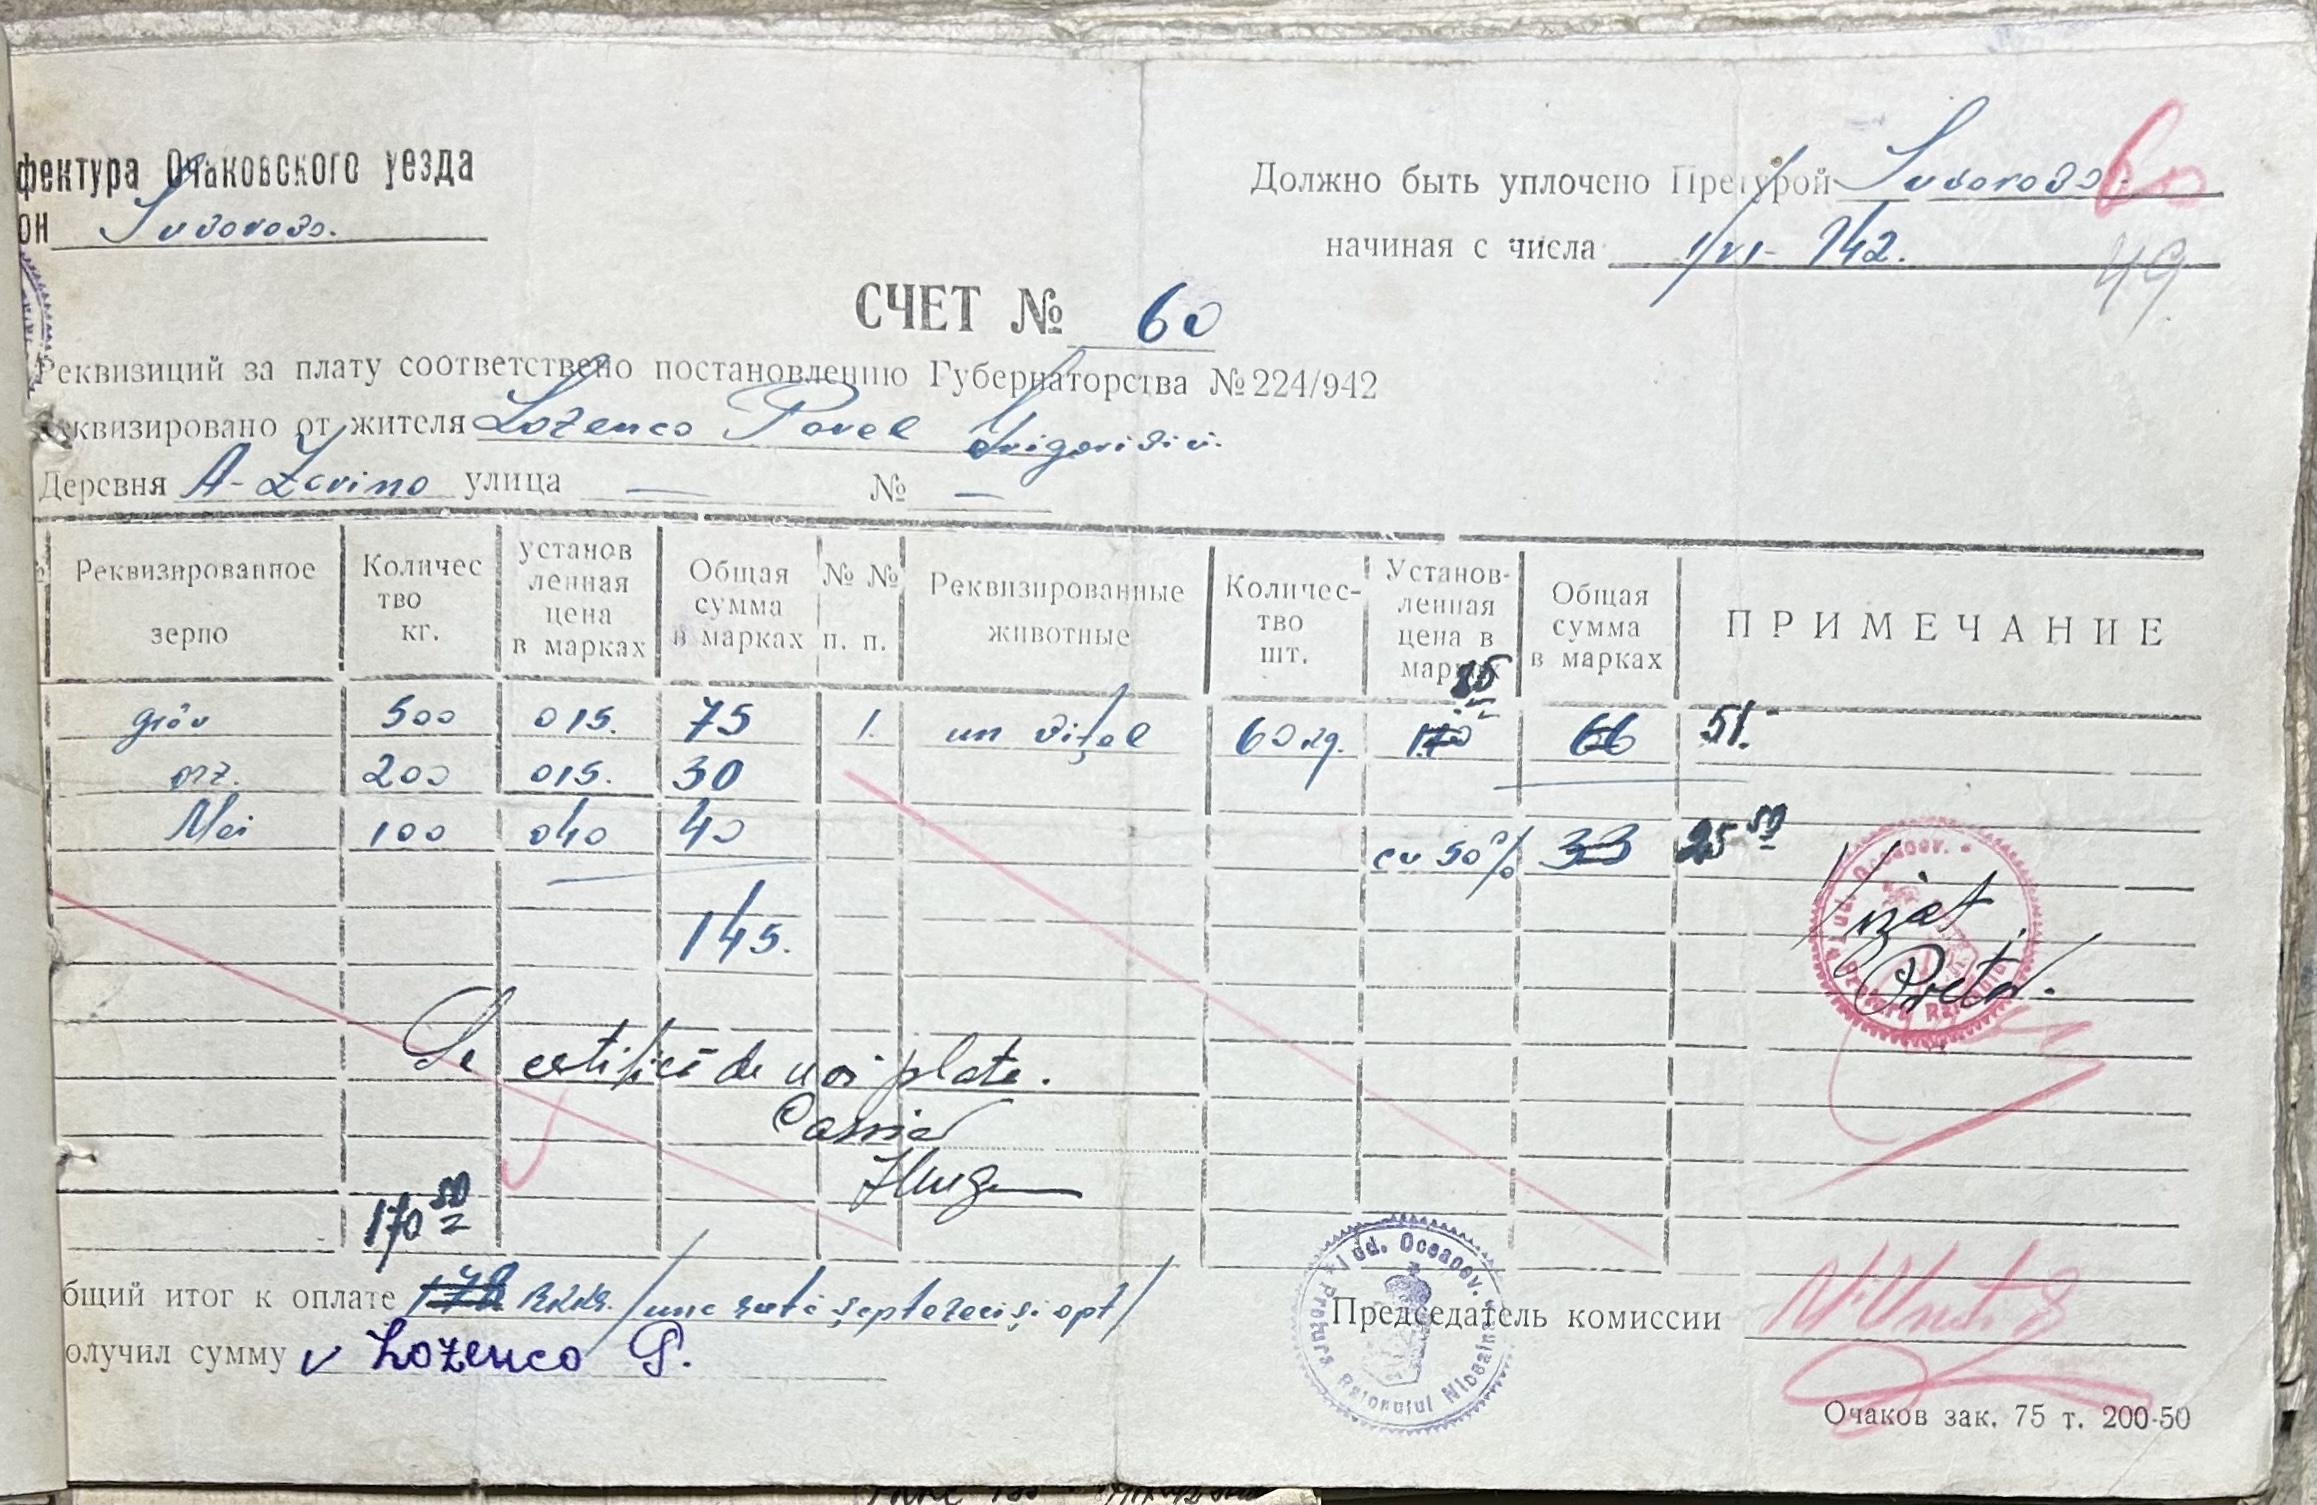 фектура Очаковского уезда
он Suvorovo.
Должно быть уплочено Претурой Suvorovo.
60
начиная с числа 1/VI- 942.
49
СЧЕТ № 60
Реквизиций за плату соответствено постановлению Губернаторства № 224/942
еквизировано от жителя Lozenco Pavel Grigorivici.
Деревня A- Zarino улица — № —
Реквизированное зерно
Количес тво кг.
установ ленная цена в марках
Общая сумма в марках
№ № п. п.
Реквизированные животные
Количес- тво шт.
Установ- ленная цена в марках
Общая сумма в марках
ПРИМЕЧАНИЕ
85
grâu 500 015. 75 1. un vițel 60 kg. 1.10 66 51.-
orz. 200 015. 30
Mei 100 040 40 cu 50% 33 25 50
145.
Vizat
Pretor.
Se certifică de noi plata.
Casier
170 50
бщий итог к оплате 178 RKKS. /una sută șeptezeci și opt/
Председатель комиссии
олучил сумму v Lozenco P.
Jud. Oceacov. * Pretura Raionului
Очаков зак. 75 т. 200-50